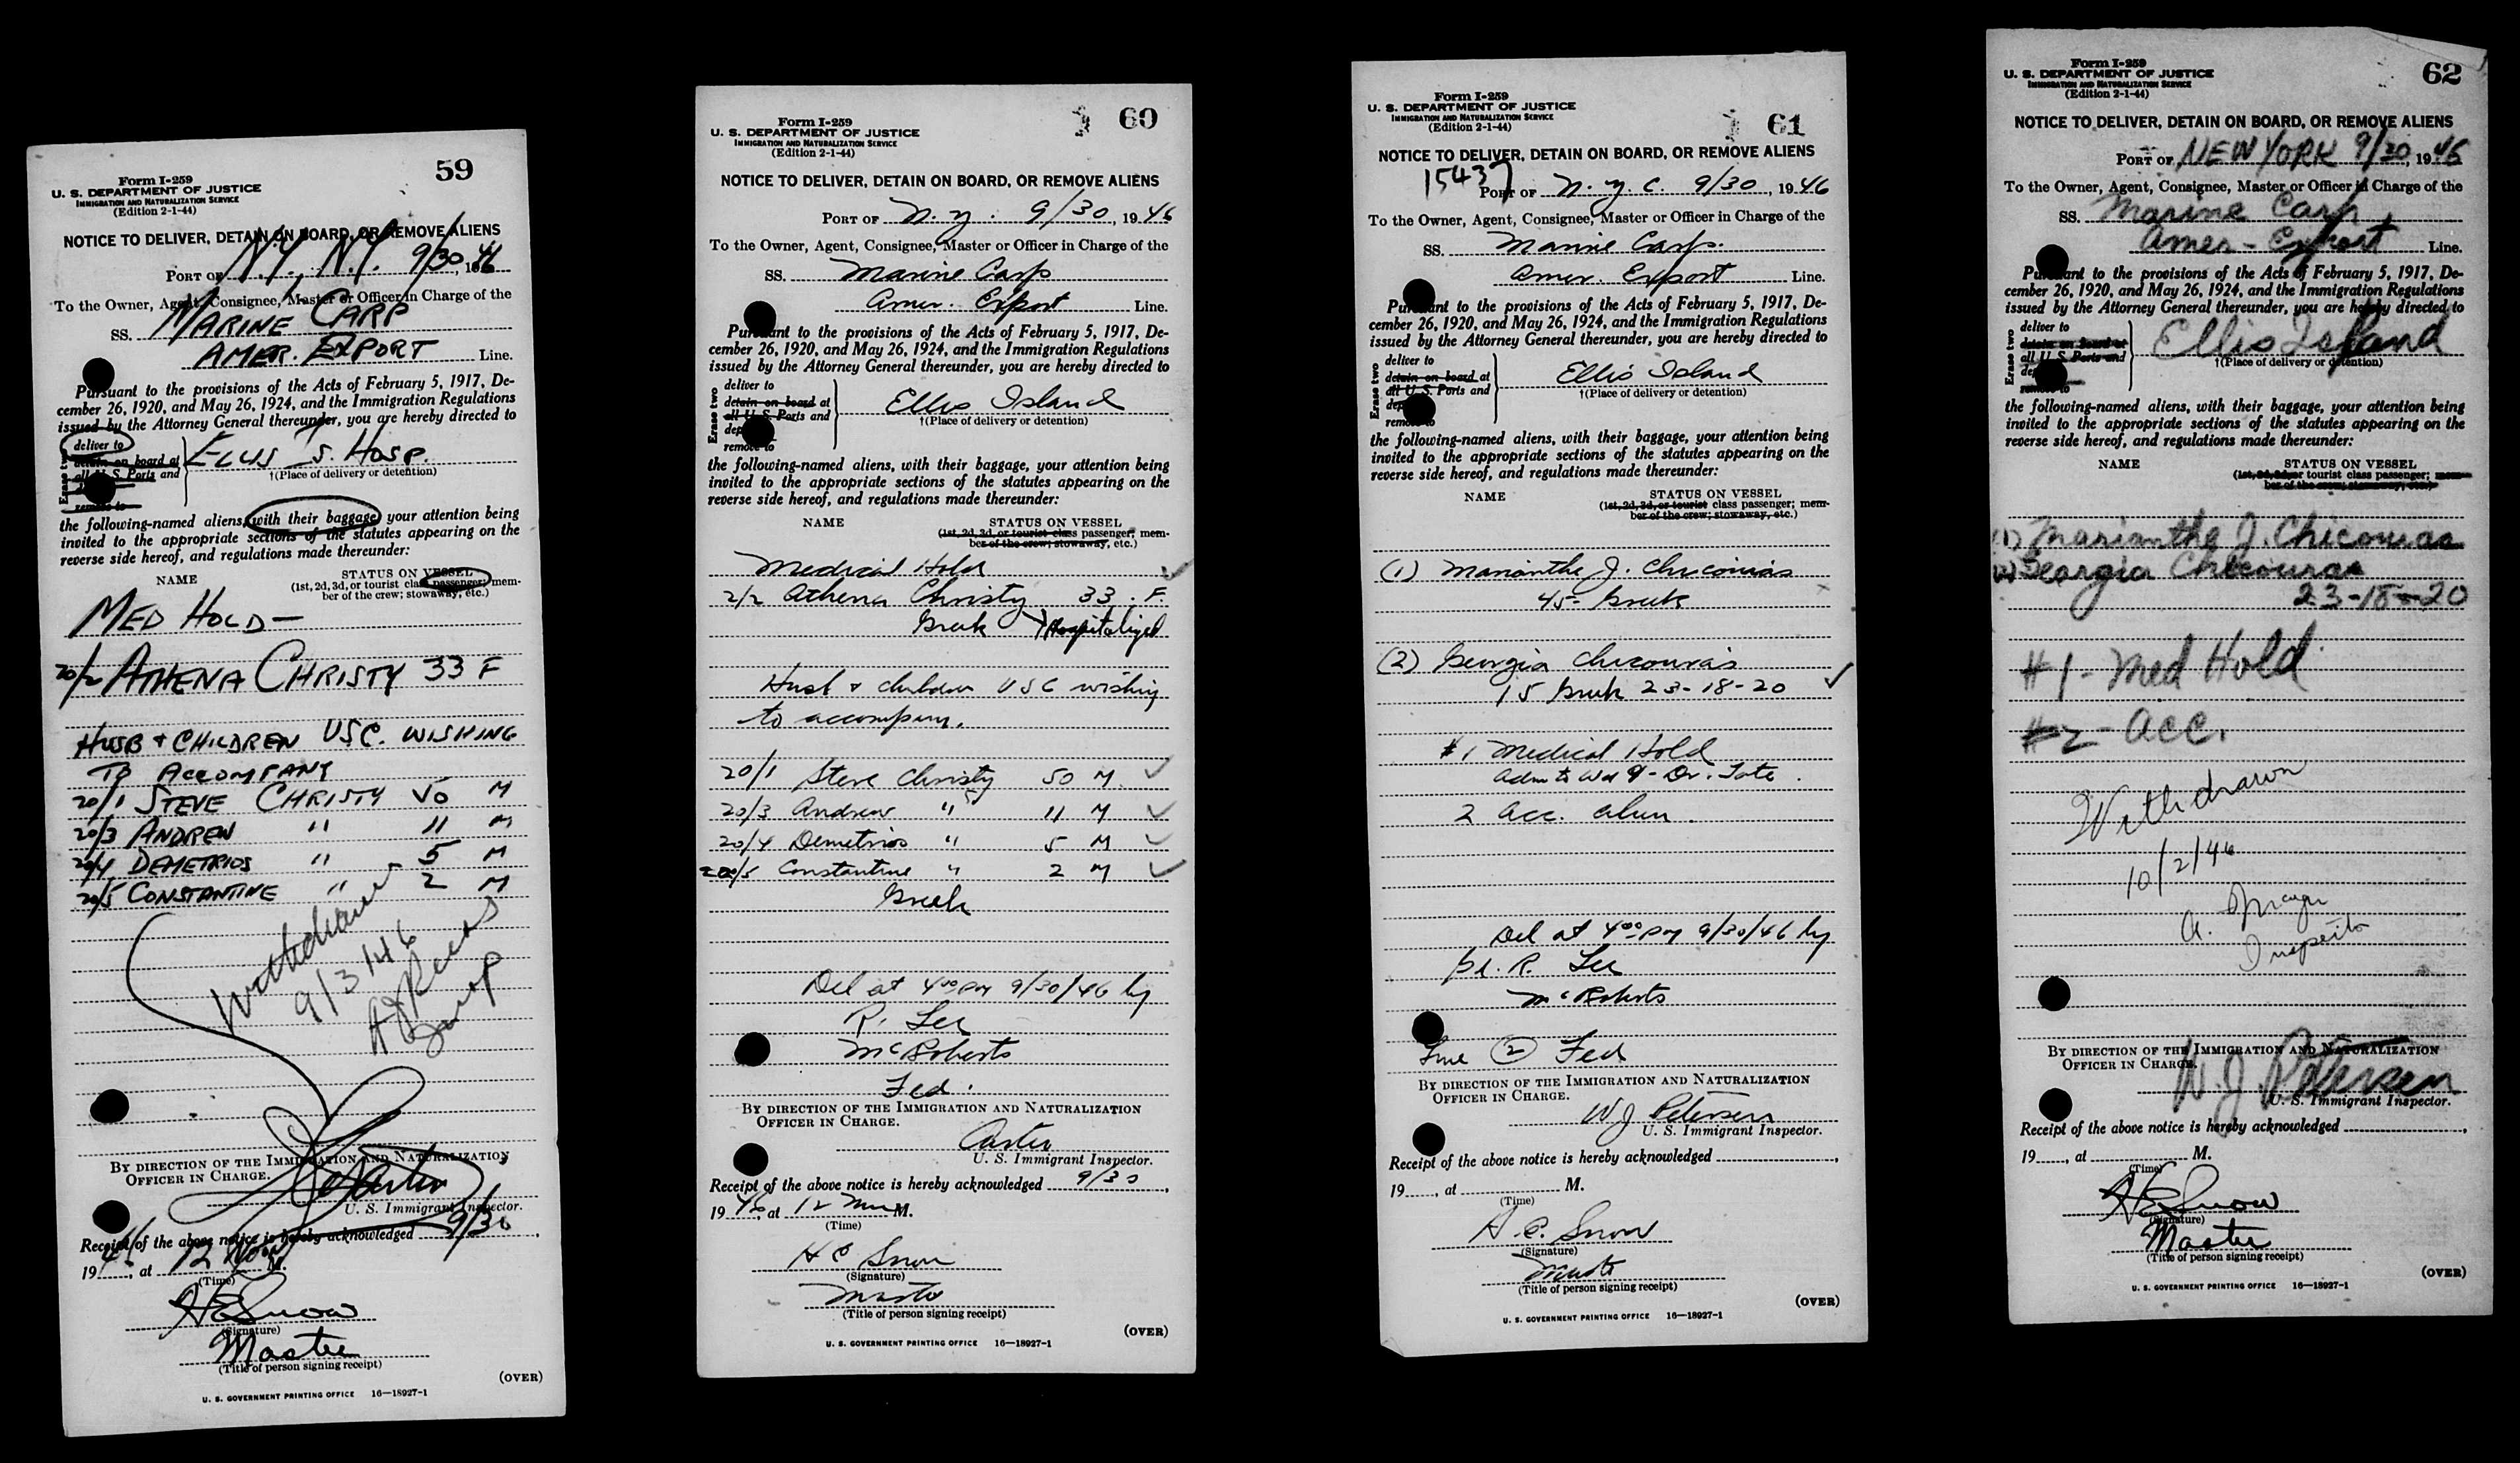 59
Form I-259
U. S. DEPARTMENT OF JUSTICE
IMMIGRATION AND NATURALIZATION SERVICE
(Edition 2-1-44)
NOTICE TO DELIVER, DETAIN ON BOARD, OR REMOVE ALIENS
PORT OF N.Y., N.Y. 9/30, 1946
To the Owner, Agent, Consignee, Master or Officer in Charge of the
SS. MARINE CARP
AMER. EXPORT Line.
Pursuant to the provisions of the Acts of February 5, 1917, De-
cember 26, 1920, and May 26, 1924, and the Immigration Regulations
issued by the Attorney General thereunder, you are hereby directed to
Erase two
deliver to
detain on board at
all U. S. Ports and
remove to
ELLIS I. HOSP.
†(Place of delivery or detention)
the following-named aliens, with their baggage, your attention being
invited to the appropriate sections of the statutes appearing on the
reverse side hereof, and regulations made thereunder:
NAME STATUS ON VESSEL
(1st, 2d, 3d, or tourist class passenger; mem-
ber of the crew; stowaway, etc.)
MED HOLD—
20/2 ATHENA CHRISTY 33 F
HUSB + CHILDREN USC. WISHING
TO ACCOMPANY
20/1 STEVE CHRISTY 50 M
20/3 ANDREW " 11 M
20/4 DEMETRIOS " 5 M
20/5 CONSTANTINE " 2 M
Withdrawn
BY DIRECTION OF THE IMMIGRATION AND NATURALIZATION
OFFICER IN CHARGE.
U. S. Immigrant Inspector.
Receipt of the above notice is hereby acknowledged 9/30,
1946, at 12 Noon M.
(Time)
H E Snow
(Signature)
Master
(Title of person signing receipt)
(OVER)
U. S. GOVERNMENT PRINTING OFFICE 16—18927-1
60
Form I-259
U. S. DEPARTMENT OF JUSTICE
IMMIGRATION AND NATURALIZATION SERVICE
(Edition 2-1-44)
NOTICE TO DELIVER, DETAIN ON BOARD, OR REMOVE ALIENS
PORT OF N. Y. 9/30, 1946
To the Owner, Agent, Consignee, Master or Officer in Charge of the
SS. Marine Carp
Amer. Export Line.
Pursuant to the provisions of the Acts of February 5, 1917, De-
cember 26, 1920, and May 26, 1924, and the Immigration Regulations
issued by the Attorney General thereunder, you are hereby directed to
Erase two
deliver to
detain on board at
all U. S. Ports and
remove to
Ellis Island
†(Place of delivery or detention)
the following-named aliens, with their baggage, your attention being
invited to the appropriate sections of the statutes appearing on the
reverse side hereof, and regulations made thereunder:
NAME STATUS ON VESSEL
(1st, 2d, 3d, or tourist class passenger; mem-
ber of the crew; stowaway, etc.)
Medical Hold
2/2 Athena Christy 33 . F.
Greek Hospitalized
Husb + children USC wishing
to accompany.
20/1 Steve Christy 50 M.
20/3 Andrew " 11 M
20/4 Demetrios " 5 M
20/5 Constantine " 2 M
Greek
Del at 4:00 PM 9/30/46 by
R. Lee
McRoberts
Fed.
BY DIRECTION OF THE IMMIGRATION AND NATURALIZATION
OFFICER IN CHARGE.
Carter
U. S. Immigrant Inspector.
Receipt of the above notice is hereby acknowledged 9/30,
1946, at 12 M.
(Time)
H E Snow
(Signature)
Master
(Title of person signing receipt)
(OVER)
U. S. GOVERNMENT PRINTING OFFICE 16—18927-1
61
Form I-259
U. S. DEPARTMENT OF JUSTICE
IMMIGRATION AND NATURALIZATION SERVICE
(Edition 2-1-44)
NOTICE TO DELIVER, DETAIN ON BOARD, OR REMOVE ALIENS
15437
PORT OF N. Y. C. 9/30, 1946
To the Owner, Agent, Consignee, Master or Officer in Charge of the
SS. Marine Carp.
Amer. Export Line.
Pursuant to the provisions of the Acts of February 5, 1917, De-
cember 26, 1920, and May 26, 1924, and the Immigration Regulations
issued by the Attorney General thereunder, you are hereby directed to
Erase two
deliver to
detain on board at
all U. S. Ports and
remove to
Ellis Island
†(Place of delivery or detention)
the following-named aliens, with their baggage, your attention being
invited to the appropriate sections of the statutes appearing on the
reverse side hereof, and regulations made thereunder:
NAME STATUS ON VESSEL
(1st, 2d, 3d, or tourist class passenger; mem-
ber of the crew; stowaway, etc.)
(1) Marianthe J. Chicouras
45- Greek
(2) Georgia Chicouras
15 Greek 23-18-20
#1 Medical Hold
Adm to Wd 9 - Dr. Tate.
2 Acc. alien.
Del at 4:00 PM 9/30/46 by
R. Lee
McRoberts
(2) Fed
BY DIRECTION OF THE IMMIGRATION AND NATURALIZATION
OFFICER IN CHARGE.
W J Petersen
U. S. Immigrant Inspector.
Receipt of the above notice is hereby acknowledged
19, at M.
(Time)
H. E. Snow
(Signature)
Master
(Title of person signing receipt)
(OVER)
U. S. GOVERNMENT PRINTING OFFICE 16—18927-1
62
Form I-259
U. S. DEPARTMENT OF JUSTICE
IMMIGRATION AND NATURALIZATION SERVICE
(Edition 2-1-44)
NOTICE TO DELIVER, DETAIN ON BOARD, OR REMOVE ALIENS
PORT OF NEW YORK 9/30 1946
To the Owner, Agent, Consignee, Master or Officer in Charge of the
SS. Marine Carp,
Amer-Export Line.
Pursuant to the provisions of the Acts of February 5, 1917, De-
cember 26, 1920, and May 26, 1924, and the Immigration Regulations
issued by the Attorney General thereunder, you are hereby directed to
Erase two
deliver to
detain on board at
all U. S. Ports and
remove to
Ellis Island
†(Place of delivery or detention)
the following-named aliens, with their baggage, your attention being
invited to the appropriate sections of the statutes appearing on the
reverse side hereof, and regulations made thereunder:
NAME STATUS ON VESSEL
(1st, 2d, 3d, or tourist class passenger; mem-
ber of the crew; stowaway, etc.)
(1) Marianthe J. Chicouras
(2) Georgia Chicouras
23-18-20
#1- Med Hold
#2- Acc.
Withdrawn
10/2/46
Inspector
BY DIRECTION OF THE IMMIGRATION AND NATURALIZATION
OFFICER IN CHARGE.
W. J. Petersen
U. S. Immigrant Inspector.
Receipt of the above notice is hereby acknowledged
19, at M.
(Time)
H E Snow
(Signature)
Master
(Title of person signing receipt)
(OVER)
U. S. GOVERNMENT PRINTING OFFICE 16—18927-1